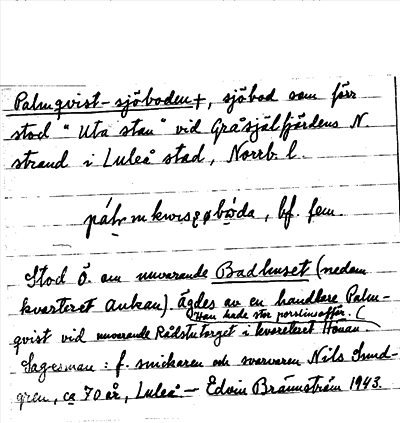 Palmqvist-sjöboden †, sjöbod som förr
stod "Uta stan" vid Gråsjälfjärdens N.
strand i Luleå stad, Norrb. l.
bf. fem.
Stod Ö. om nuvarande Badhuset (nedom
kvarteret Ankan). Ägdes av en handlare Palm-
Han hade stor porslinsaffär. (
qvist vid nuvarande Rådstutorget i kvarteret Hönan.
Sagesman: f. snickaren och svarvaren Nils Sund-
gren, ca 70 år, Luleå. — Edvin Brännström 1943.